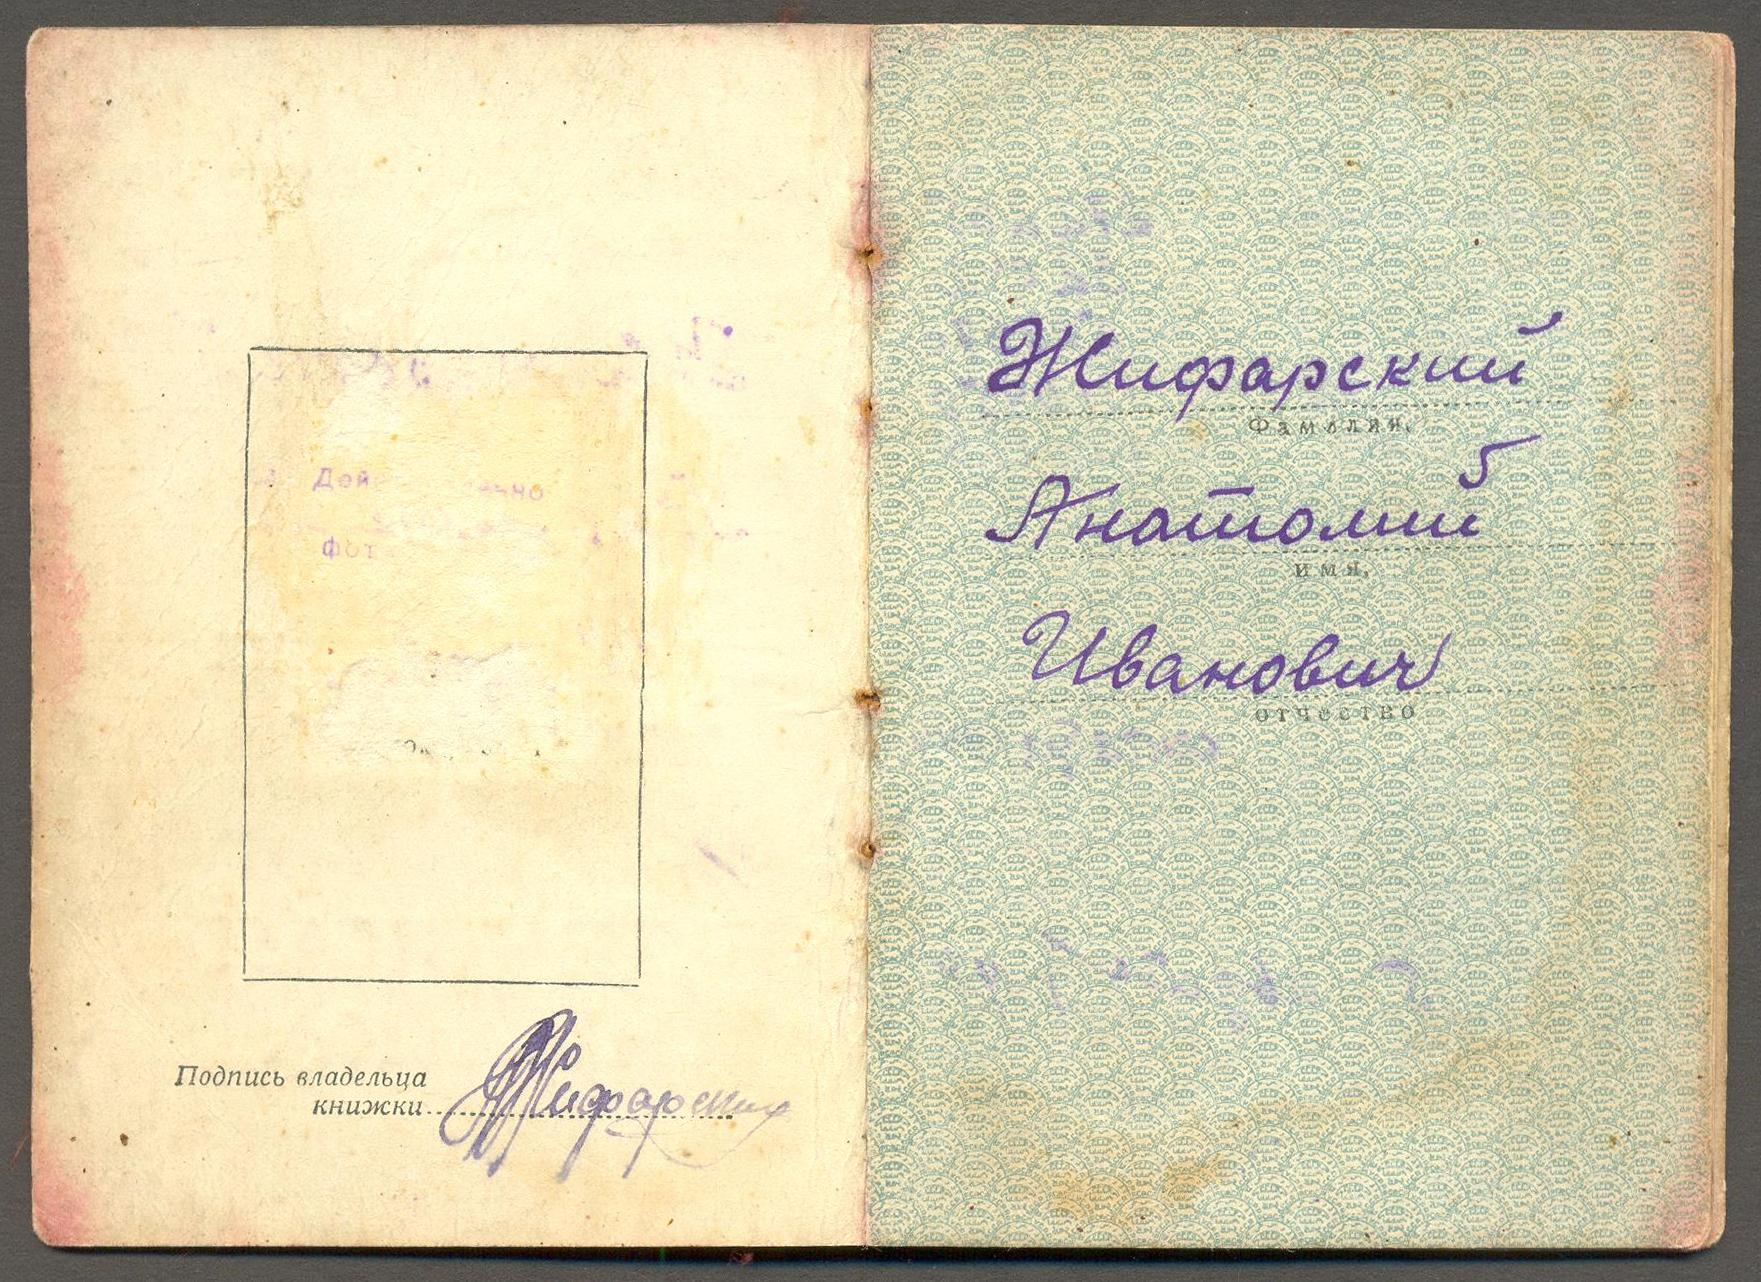 Подпись владельца
книжки Жифарский
Жифарский
Фамилия,
Анатолий
имя,
Иванович
отчество